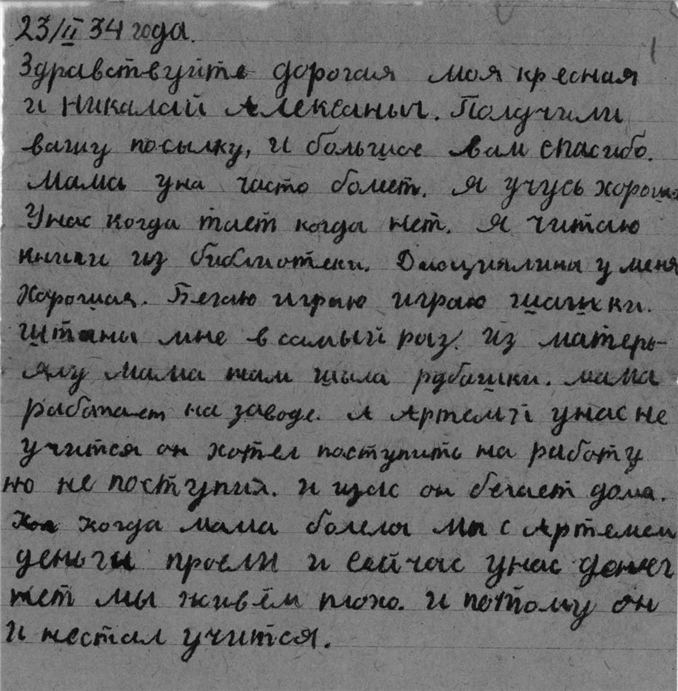 23/II 34 года.
Здравствуйте дорогая моя кресная
и Никалай Алексаныч. Получили
вашу посылку, и большое вам спасибо.
Мама у на часто болеет. Я учусь хорошо
Унас когда тает когда нет. Я читаю
книги из библиотеки. Дисциплина у меня
хорошая. Бегаю играю играю шашки.
Штаны мне в самый раз. Из матерь-
ялу мама нам шыла рубашки. Мама
работает на заводе. А Артемий унас не
учится он хотел поступить на работу
но не поступил. и щас он бегает дома.
когда мама болела мы с Артемем
деньги проели и сейчас унас денег
нет мы живём плохо. и потому он
и нестал учится.